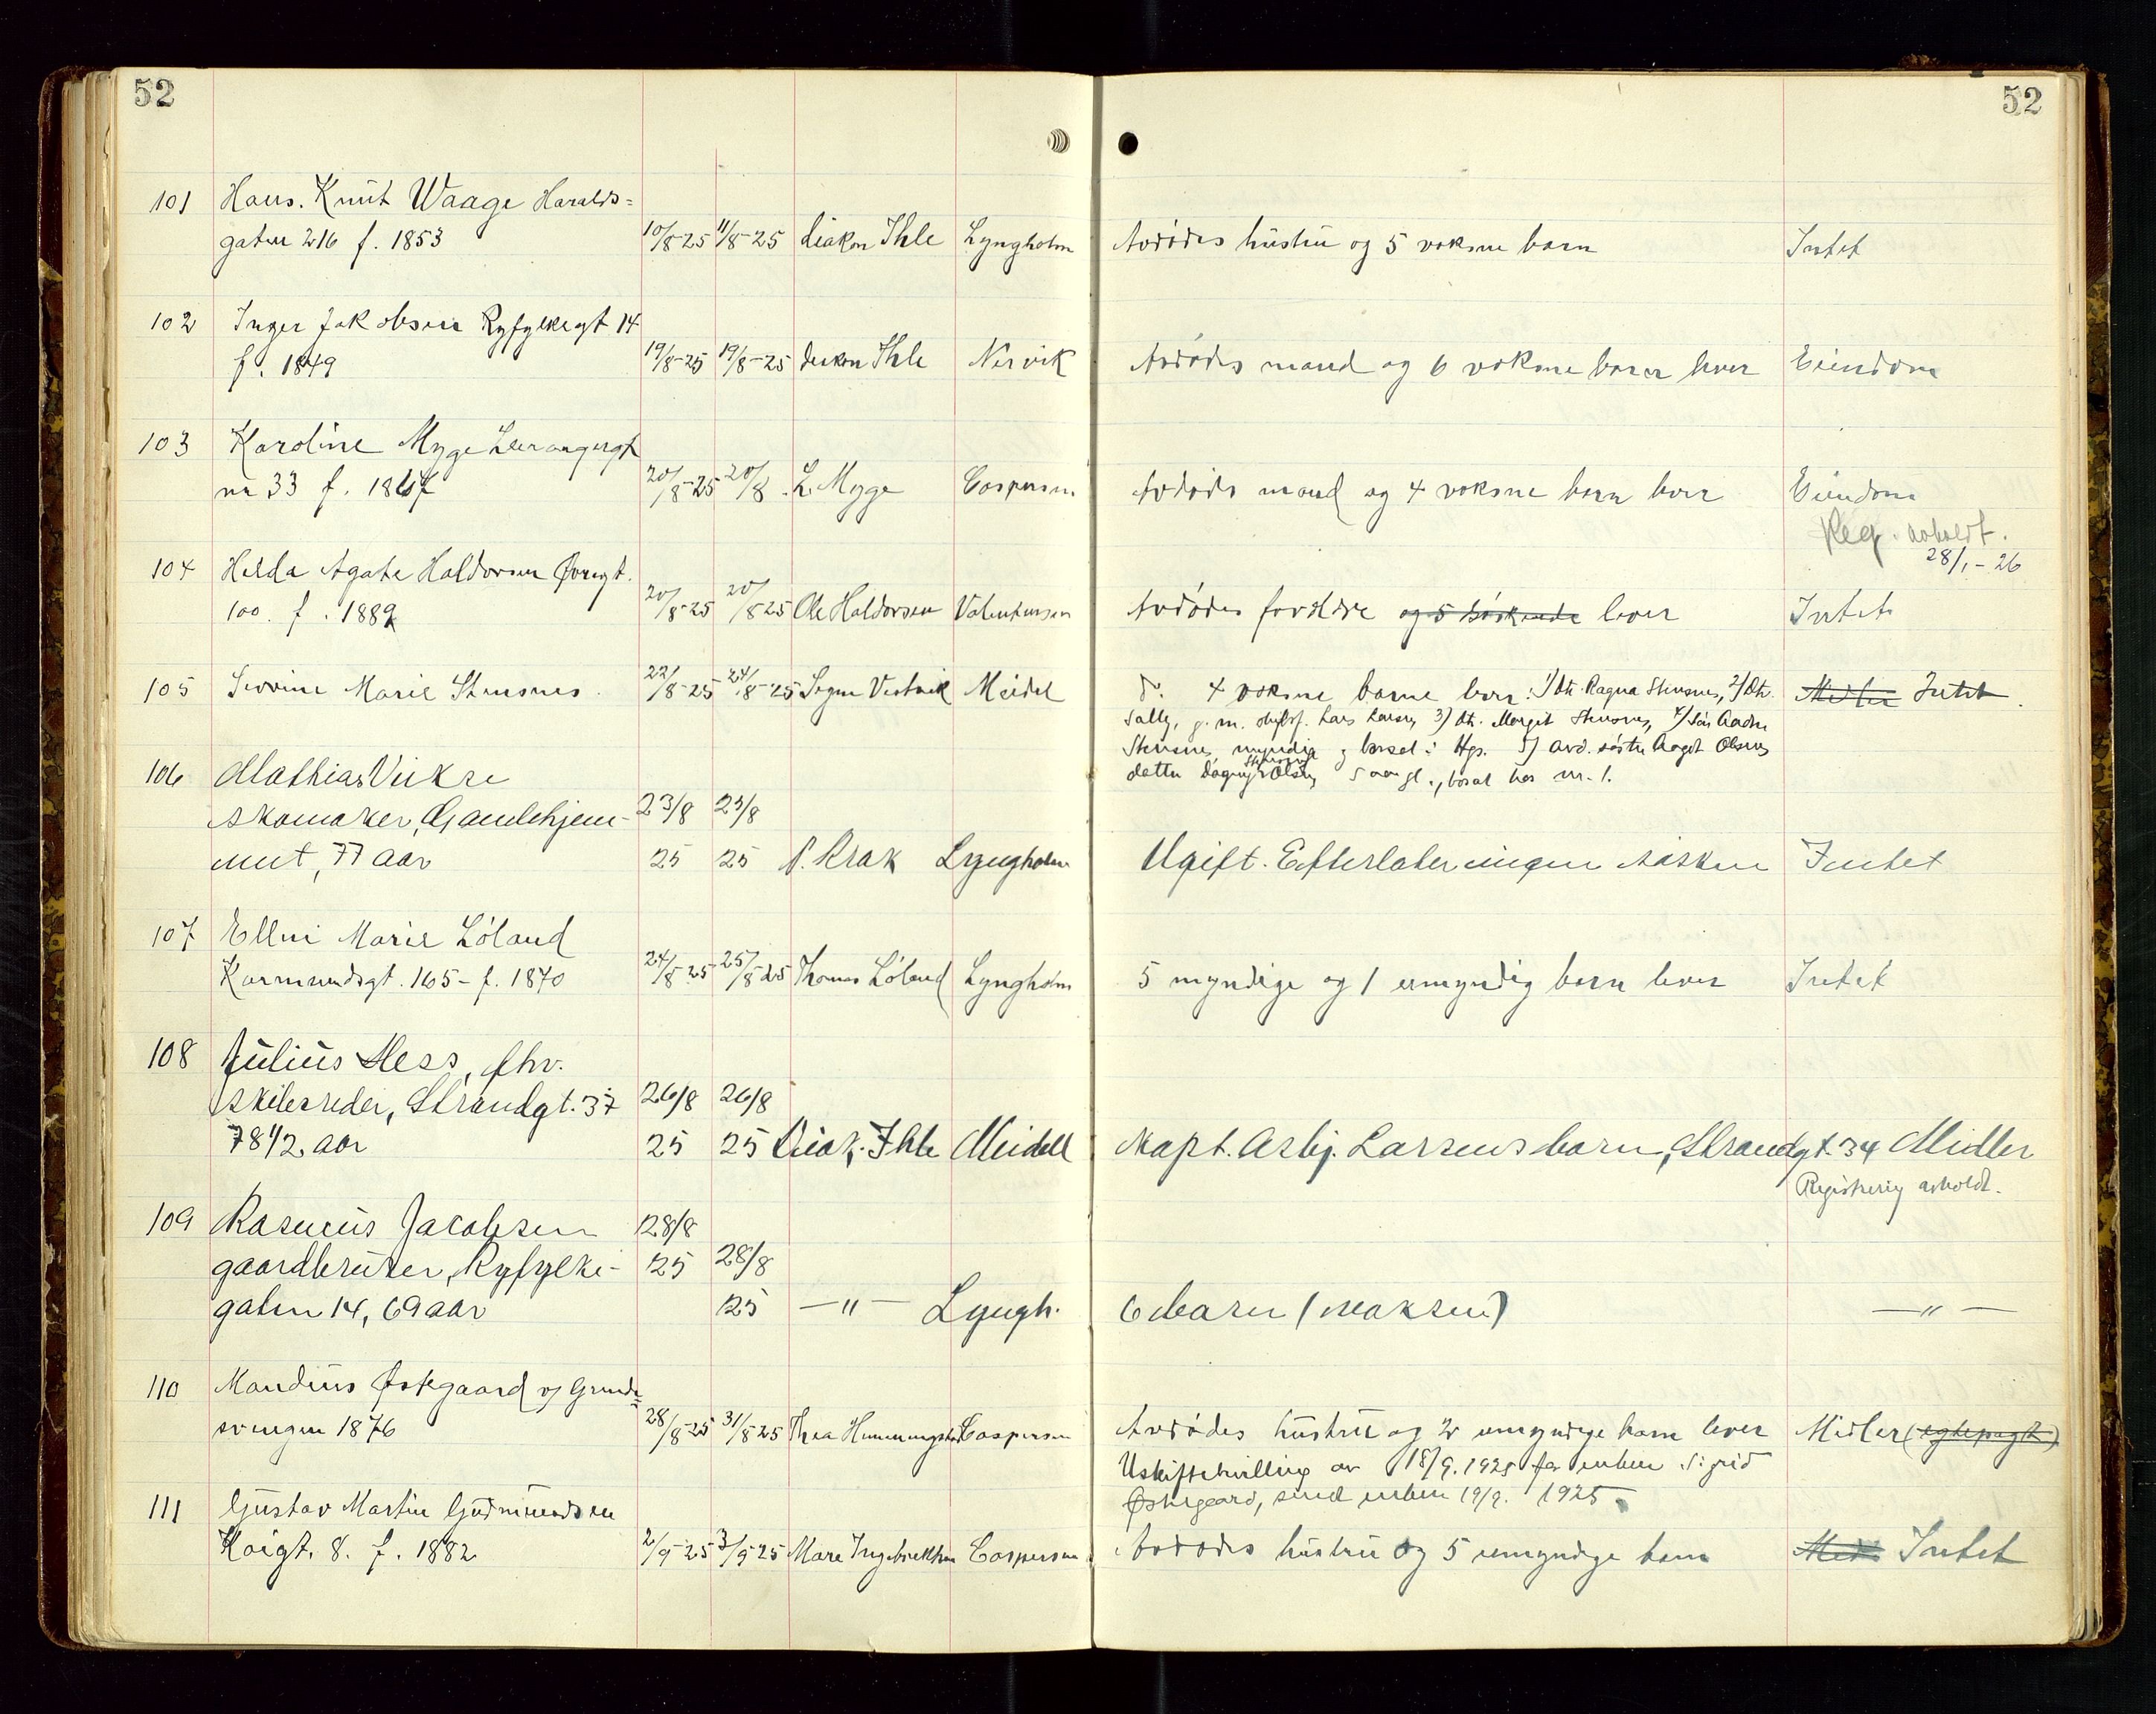 52
52
101 Hans. Knut Waage Haralds=
gaten 216 f. 1853 10/8-25 11/8-25 diakon Ihle Lyngholm Avdødes hustru og 5 voksne barn Intet
102 Inger Jakobsen Ryfylkegt 14
f. 1849 19/8-25 19/8-25 deakon Ihle Nervik Avdødes mand og 6 voksne barn lever Eiendom
103 Karoline Myge
nr 33 f. 20/8-25 20/8 L. Myge Caspersen Avdøds mand og 4 voksne barn lever Eiendom
Reg. avholdt.
28/1-26
104 Helda Agate Haldorsen Øvregt.
100. f. 1889 20/8-25 20/8 25 Ole Haldorsen Valentinsen Avdødes forældre og 5 søskende lever Intet
105 Severine Marie Stensnes 22/8-25 24/8-25 Meidel 4 voksne barn lever: 1) Dtr. Ragna Stensnes, 2) Dtr. Midler Intet
Sally, g. m. Lars Larsen, 3) Dtr. Margit Stensnes, 4) Søn
Stensnes, myndig, bosat i Hgs. 5) avd. søster Aagot Olsens
Stensnes
datter Dagny Olsen, 5 aar gl., bosat hos nr. 1.
106 Mathias Vikse
skomaker, Gamlehjem- 23/8 23/8
met, 77 aar 25 25 P. Krak Lyngholm Ugift. Efterlater ingen søsken Intet
107 Elleni Marie Løland
Karmsundsgt. 165- f. 1870 24/8-25 25/8-25 Thomas Løland Lyngholm 5 myndige og 1 umyndig barn lever Intet
108 Julius Hess, fhv.
skibsreder, Strandgt. 37 26/8 26/8
78 1/2 aar 25 25 Diak. Ihle Meidell Kapt. Asbj. Larsens barn, Strandgt. 34 Midler
Registrering avholdt.
109 Rasmus Jacobsen 28/8
gaardbruker, Ryfylke- 25 28/8
gaten 14, 69 aar 25 —"— Lyngh. 6 barn (voksen) —"—
110 Mandius Østegaard v/ Grunde=
svingen 1876 28/8-25 31/8-25 Thea Caspersen Avdødes hustru og 2 umyndige barn lever Midler (egtepagt)
Uskiftebevilling av 18/9.1925 for enken Sigrid
Østegaard, send enken 19/9. 1925.
111 Gustav Martin Gudmundsen
Kaigt. 8. f. 1882 2/9-25 3/9-25 Mare Ingebrektsen Caspersen Avdødes hustru og 5 umyndige barn Mid. Intet